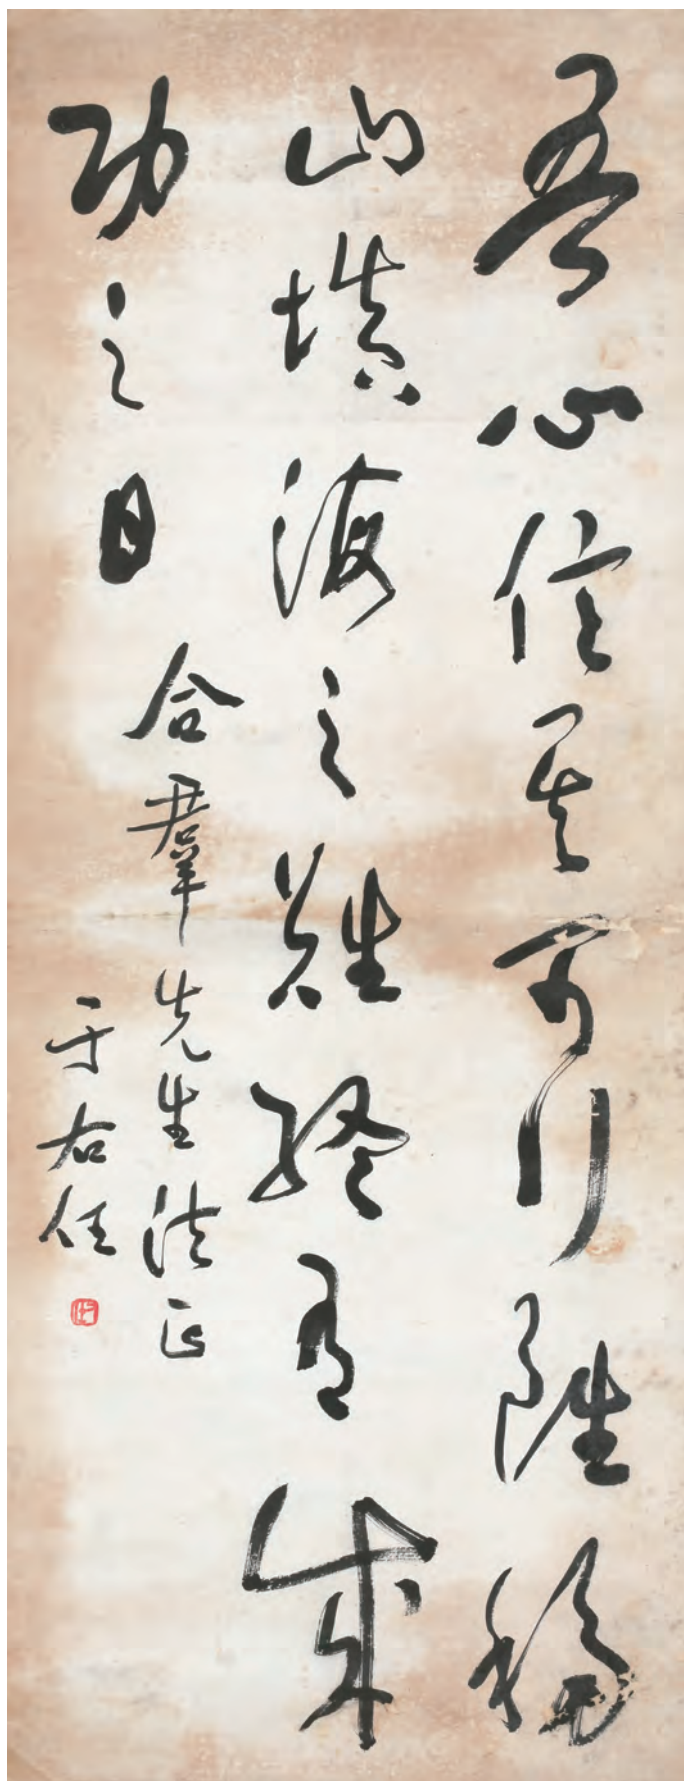 吾心信其可行雖移
山填海之難終有成
功之日
合羣先生法正
于右任